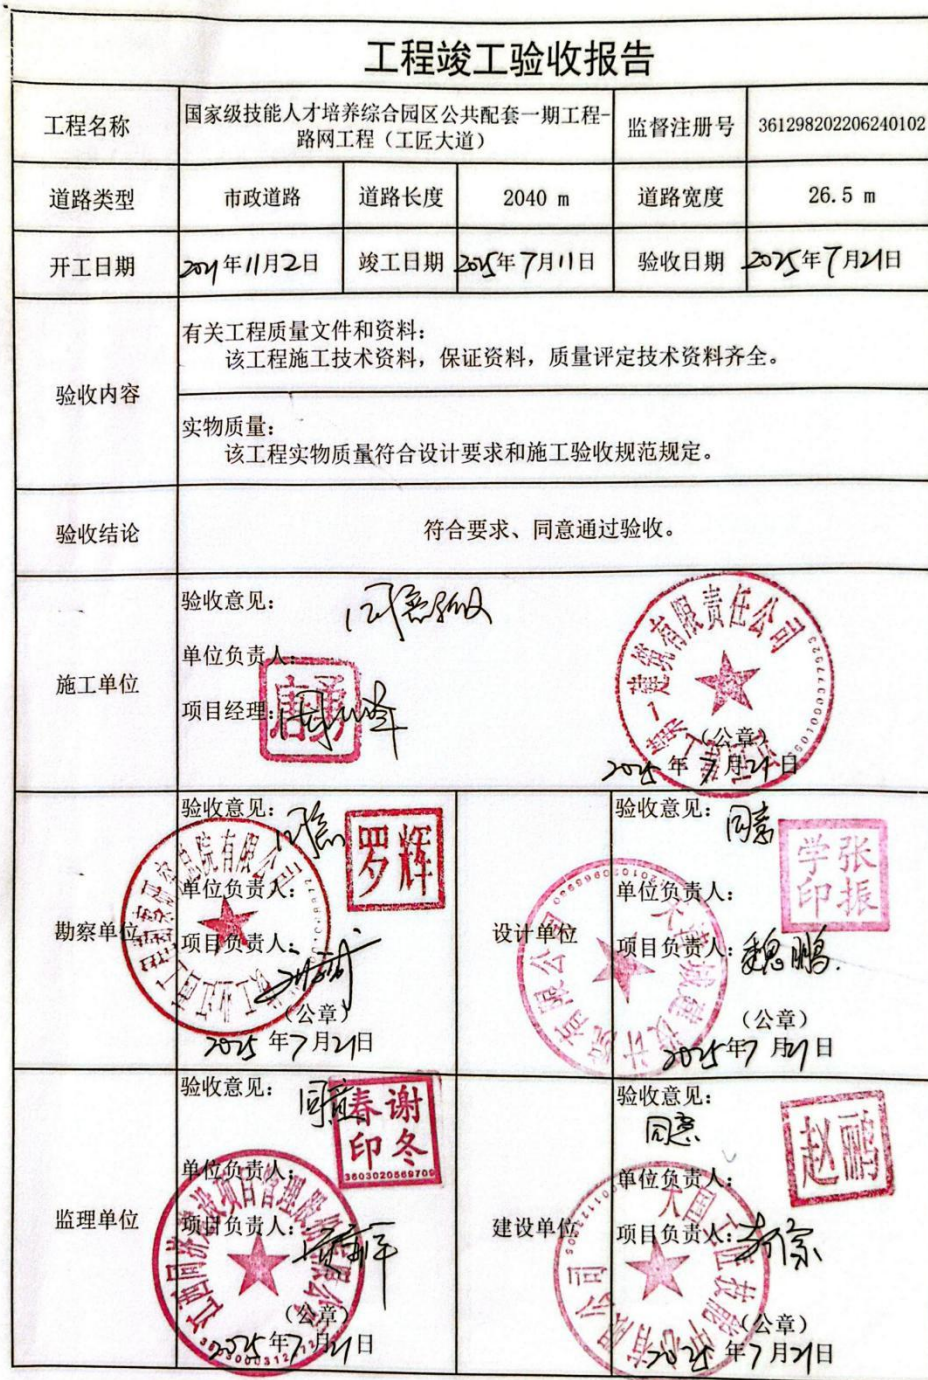 工程竣工验收报告
工程名称
国家级技能人才培养综合园区公共配套一期工程-
路网工程（工匠大道）
监督注册号
361298202206240102
道路类型
市政道路
道路长度
2040 m
道路宽度
26.5 m
开工日期
2021年11月2日
竣工日期
2025年7月11日
验收日期
2025年7月21日
验收内容
有关工程质量文件和资料：
该工程施工技术资料，保证资料，质量评定技术资料齐全。
实物质量：
该工程实物质量符合设计要求和施工验收规范规定。
验收结论
符合要求、同意通过验收。
施工单位
验收意见：
同意验收
单位负责人：
项目经理：
唐勇
建筑有限责任公司
（公章）
2025年7月21日
勘察单位
验收意见：同意
罗辉
单位负责人：
项目负责人：
（公章）
2025年7月21日
设计单位
验收意见：同意
张振学印
单位负责人：
项目负责人：魏鹏
（公章）
2025年7月21日
监理单位
验收意见：同意
谢冬春印
3603020569709
单位负责人：
项目负责人：
（公章）
2025年7月21日
建设单位
验收意见：
同意
赵鹏
单位负责人：
项目负责人：
（公章）
2025年7月21日